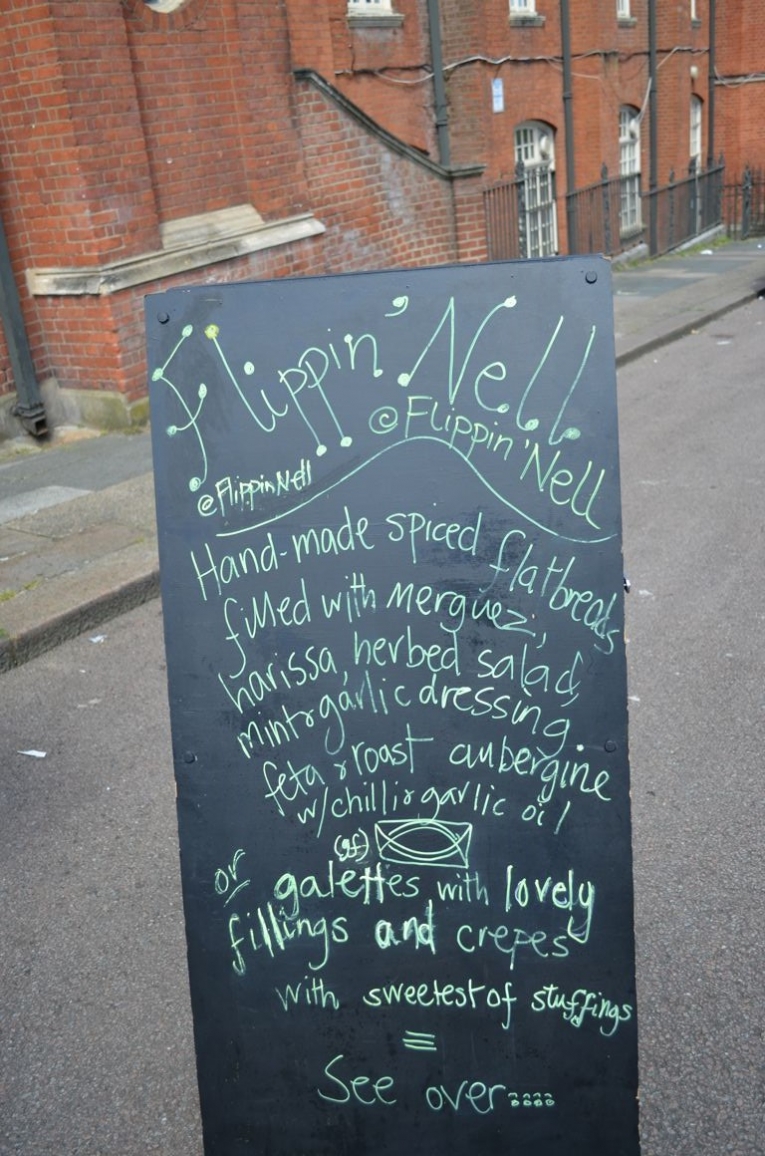 Flippin' Nell
@Flippin'Nell
@FlippinNell
Hand-made spiced flatbreads
filled with merguez,
harissa, herbed salad,
mint & garlic dressing
feta & roast aubergine
w/chilli & garlic oil
(gf)
or galettes with lovely
fillings and crepes
with sweetest of stuffings
=
See over....